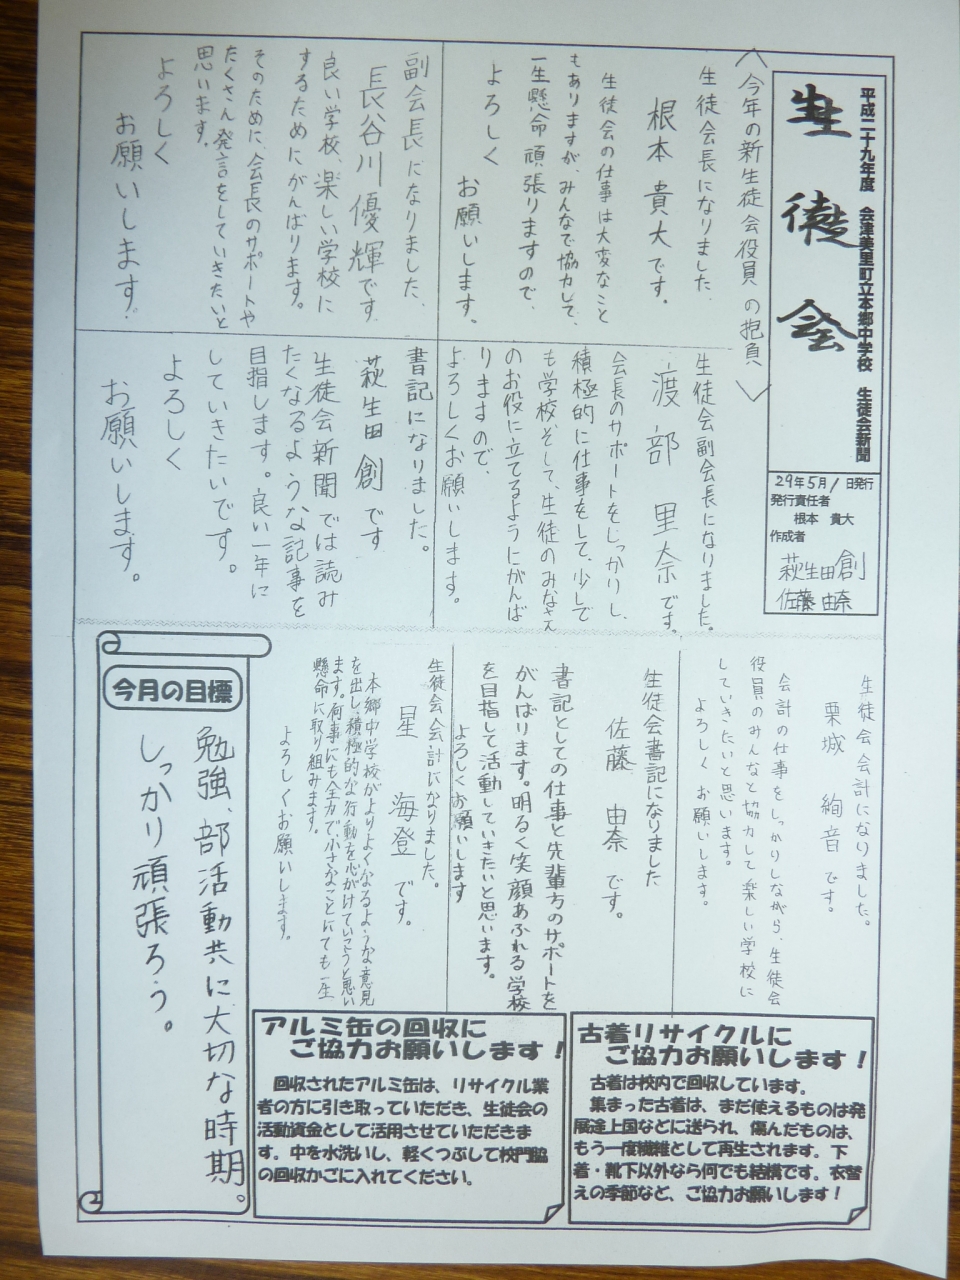 平成二十九年度 会津美里町立本郷中学校 生徒会新聞
生徒会
29年5月1日発行
発行責任者
根本 貴大
作成者
萩生田 創
佐藤 由奈
<今年の新生徒会役員の抱負>
生徒会長になりました
根本貴大です。
生徒会の仕事は大変なこと
もありますが、みんなで協力して、
一生懸命頑張りますので、
よろしく
お願いします。
副会長になりました、
長谷川優輝です
良い学校、楽しい学校に
するためにがんばります。
そのために、会長のサポートや
たくさん発言をしていきたいと
思います。
よろしく
お願いします。
生徒会副会長になりました。
渡部里奈です。
会長のサポートをしっかりし、
積極的に仕事をして、少しで
も学校、そして、生徒のみなさん
のお役に立てるようにがんば
りますので、
よろしくお願いします。
書記になりました。
萩生田創です
生徒会新聞では読み
たくなるような記事を
目指します。良い一年に
していきたいです。
よろしく
お願いします。
生徒会会計になりました。
栗城 絢音です。
会計の仕事をしっかりしながら、生徒会
役員のみんなと協力して楽しい学校に
していきたいと思います。
よろしくお願いします。
生徒会書記になりました
佐藤 由奈です。
書記としての仕事と先輩方のサポートを
がんばります。明るく笑顔あふれる学校
を目指して活動していきたいと思います。
よろしくお願いします
生徒会会計になりました。
星 海登です。
本郷中学校がよりよくなるような意見
を出し、積極的な行動を心がけていこうと思い
ます。何事にも全力で、小さなことにでも一生
懸命に取り組みます。
よろしくお願いします。
今月の目標
勉強、部活動共に大切な時期。
しっかり頑張ろう。
アルミ缶の回収に
ご協力お願いします!
回収されたアルミ缶は、リサイクル業
者の方に引き取っていただき、生徒会の
活動資金として活用させていただきま
す。中を水洗いし、軽くつぶして校門脇
の回収かごに入れてください。
古着リサイクルに
ご協力お願いします!
古着は校内で回収しています。
集まった古着は、まだ使えるものは発
展途上国などに送られ、傷んだものは、
もう一度繊維として再生されます。下
着・靴下以外なら何でも結構です。衣替
えの季節など、ご協力お願いします!